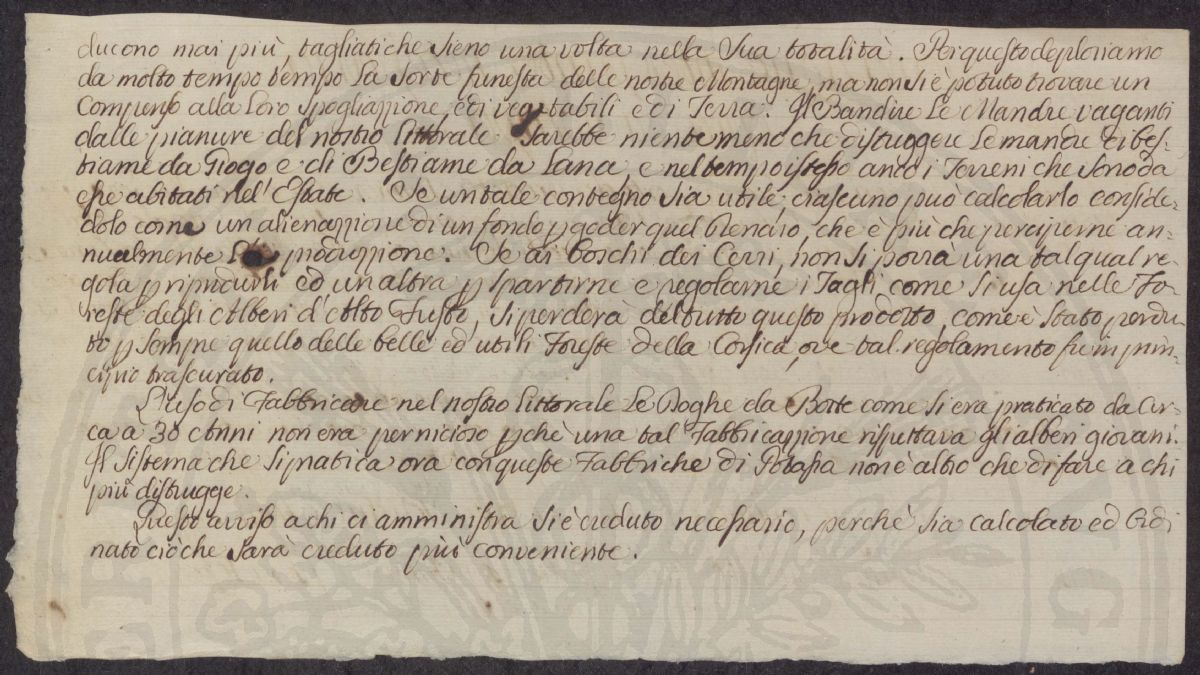 ducono mai più, tagliatiche sieno una volta nella Sua totalità. Per questo deploriamo
da molto tempo tempo La Sorte funesta delle nostre Montagne, ma non si è potuto trovare un
Compenso alla Loro Spogliazzione, e di vegetabili e di Terra. Il Bandire Le Mandre vaganti
dalle pianure del nostro littorale Sarebbe niente meno che distruggere Le mandre di bes-
tiame da Giogo e di Bestiame da Lana, e nel tempo istesso anco i Terreni che Sono da
esse abitati nel' Estate. Se un tale contegno Sia utile, ciascuno può calcolarlo conside-
dolo come un alienazzione di un fondo p goder quel Denaro, che è più che percipirne an-
nualmente La produzzione. Se ai boschi dei Cerri, non si porrà una tal qual re-
gola p riprodurli ed un altra p Spartirne e regolarne i Tagli come Si usa nelle Fo-
reste degli Alberi d'Alto Fusto, Si perderà del tutto questo prodotto, come è Stato perdu-
to p Sempre quello delle belle ed utili Foreste della Corsica, ove tal regolamento fu in prin-
cipio trascurato.
L'uso di Fabbricare nel nostro littorale Le Doghe da Botte come Si era praticato da Cir-
ca a 30 Anni non era pernicioso p chè una tal Fabbricazzione rispettava gli alberi giovani.
Il Sistema che Si pratica ora con queste Fabbriche di Potassa non è altro che di fare a chi
più distrugge.
Questo avviso a chi ci amministra Si è creduto necessario, perchè Sia calcolato ed Ordi
nato ciò che Sarà creduto più conveniente.